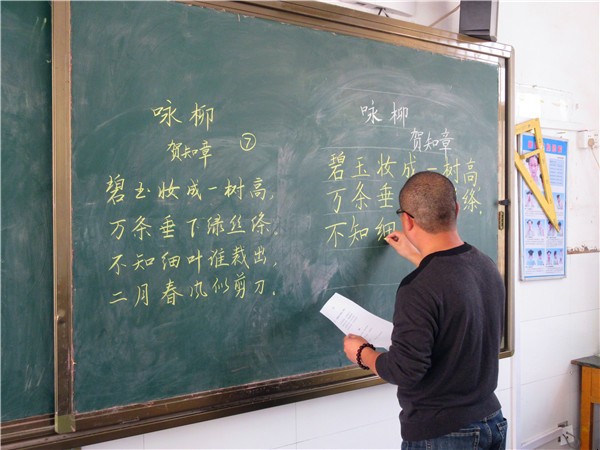 咏柳
贺知章 ⑦
碧玉妆成一树高,
万条垂下绿丝绦.
不知细叶谁裁出,
二月春风似剪刀.
咏柳
贺知章
碧玉妆成一树高,
万条垂 绦.
不知细